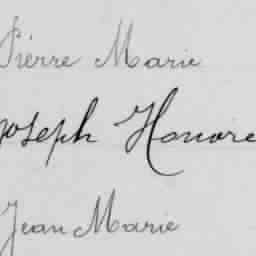 Pierre Marie
Joseph Honoré
Jean Marie